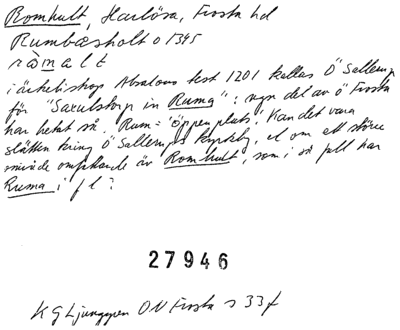 Romhult, Harlösa, Frosta hd
Rumbæsholt o 1345
råmelt
i ärkebiskop Absalons test 1201 kallas Ö Sallerup
för "Saxulstorp in Ruma": ngn del av ö Frosta
har hetat så. Rum = 'öppen plats'. Kan det vara
slätten kring Ö Sallerups kyrkby, el om ett större
område omfattande äv Romhult, som i så fall har
Ruma i f l?
27946
K G Ljunggren ON Frosta s 33 f